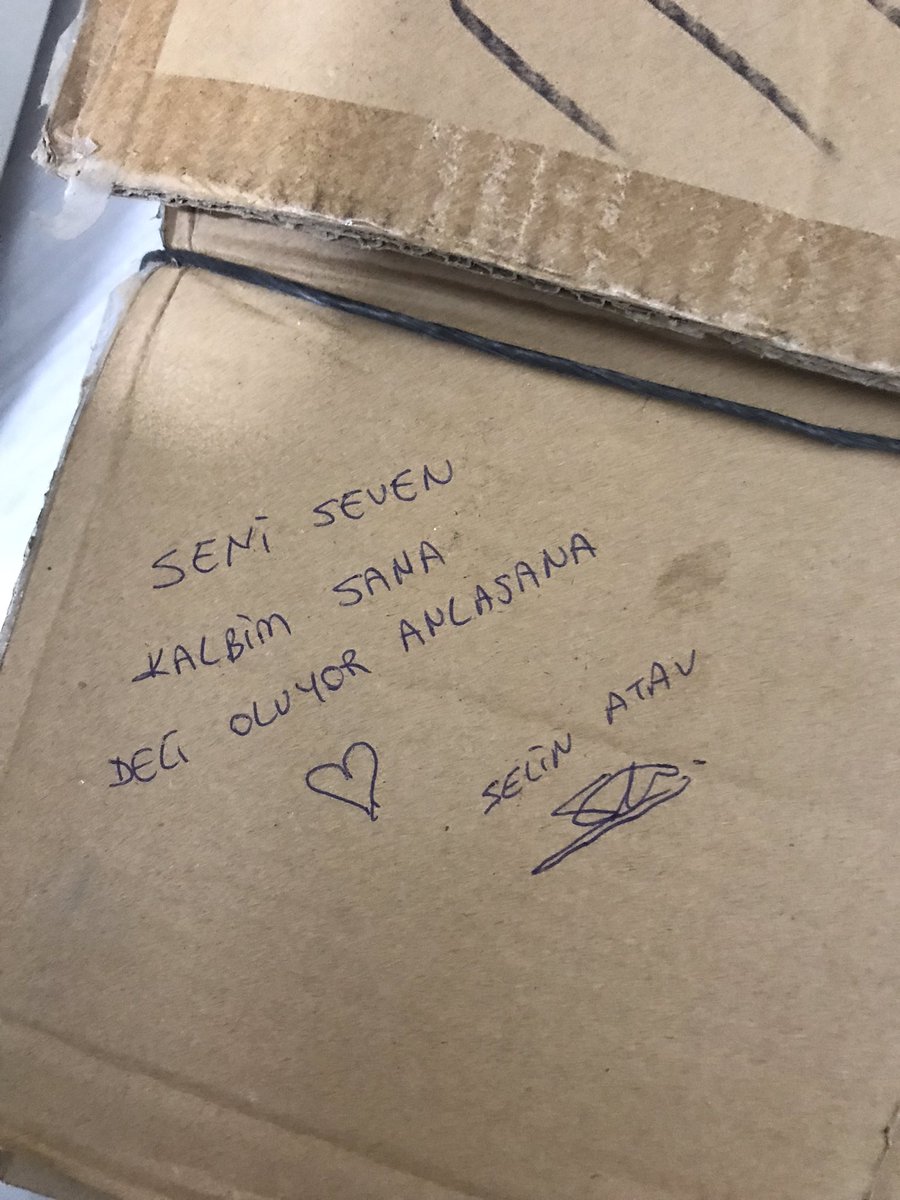 SENİ SEVEN
KALBİM SANA
DELİ OLUYOR ANLASANA
SELİN ATAV